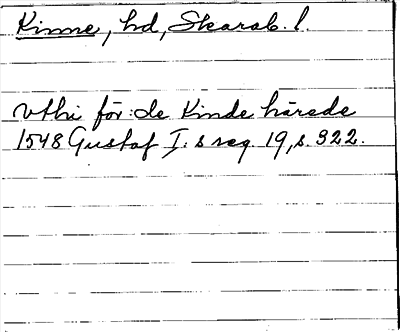 Kinne, hd, Skarab. l.
vthi för: de Kinde härede
1548 Gustaf I:s reg. 19, s. 322.